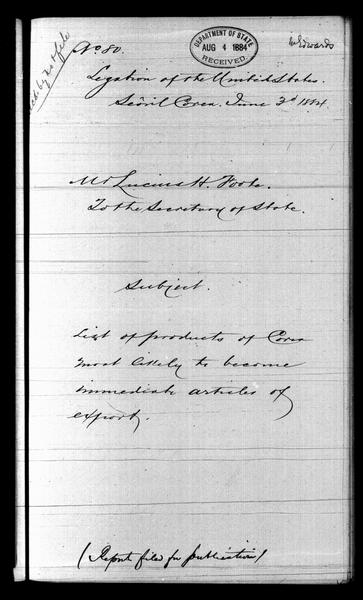 No 80.
DEPARTMENT OF STATE
AUG 4 1884
RECEIVED
Mr Edwards
Legation of the United States.
Seoul Corea. June 3d 1884.
Mr Lucius H. Foote.
To the Secretary of State.
Subject.
List of products of Corea
most likely to become
immediate articles of
export.
(Report filed for publication)